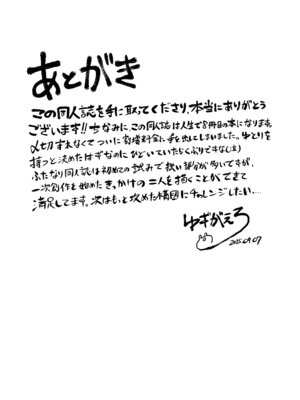 あとがき
この同人誌を手に取ってくださり、本当にありがとう
ございます!!ちなみに、この同人誌は人生で8冊目の本になります。
〆切守れなくてついに割増料金に手を出してしまいました。ゆとりを
持つと決めたはずなのに、ひどいていたらくぶりですな(泣)
ふたなり同人誌は初めての試みで拙い部分が多いですが、
一次創作を始めたきっかけの二人を描くことができて
満足してます。次はもっと攻めた構図にチャレンジしたい…
ゆずがえろ